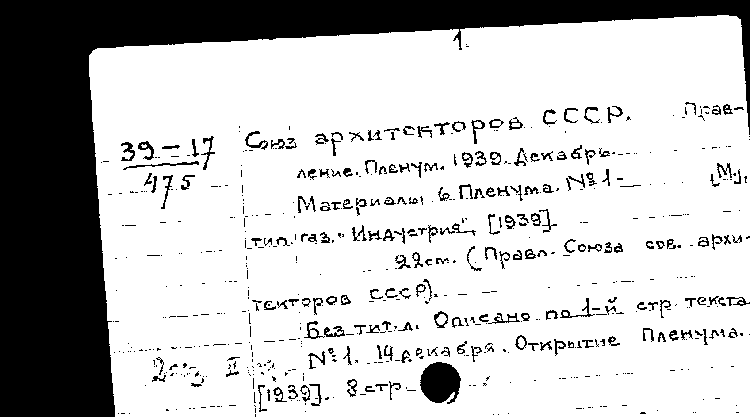 1.
39-17
475
Союз архитекторов СССР. Прав-
ление. Пленум. 1939. Декабрь.
Материалы 6 Пленума. №1- [М.],
тип. газ. "Индустрия", [1939].
22см. (Правл. Союза сов. архи-
текторов СССР).
Без тит. л. Описано по 1-й стр. текста
№1. 14 декабря. Открытие Пленума.
[1939]. 8 стр.